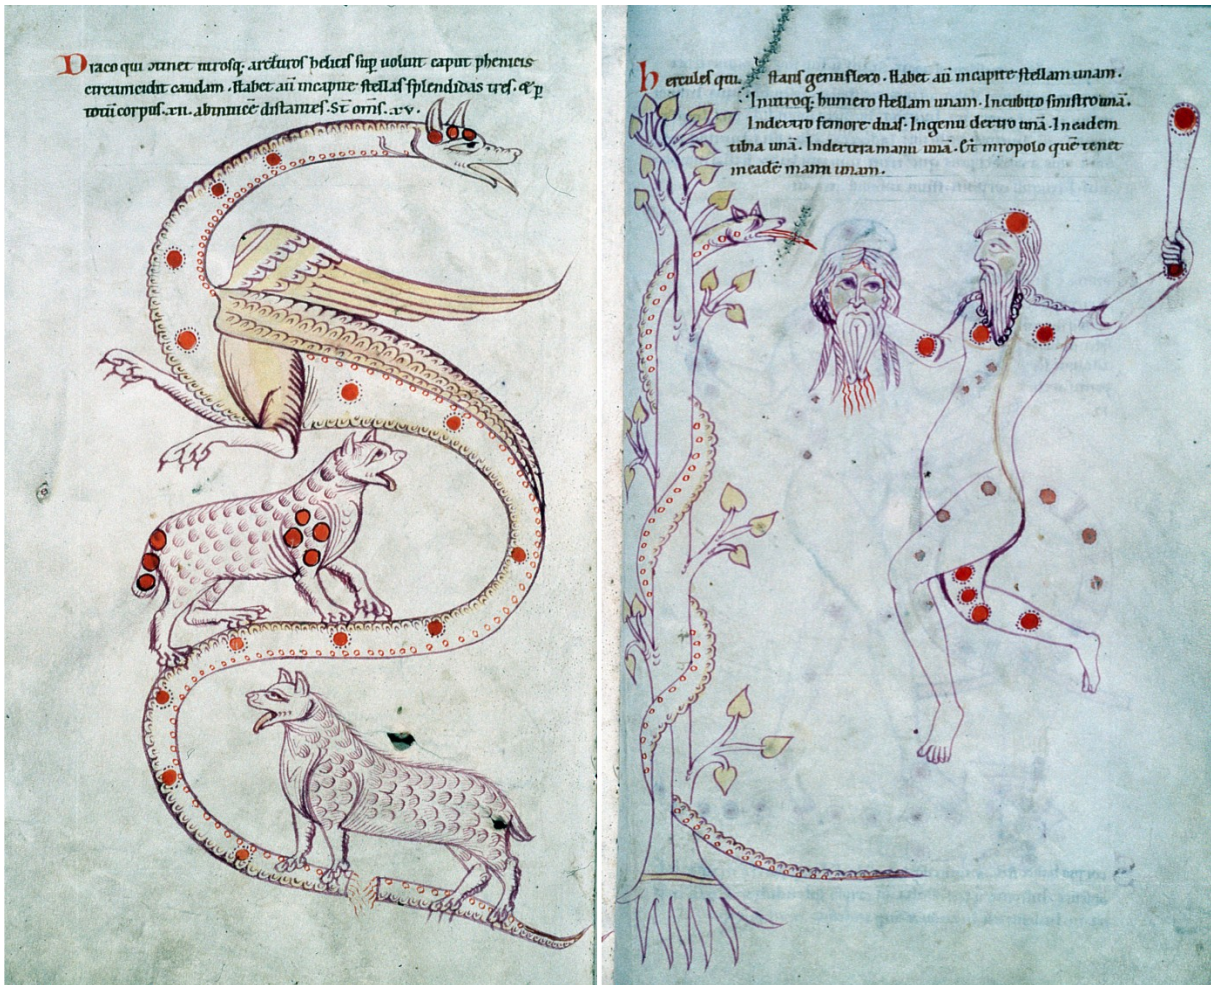 Draco qui continet utrosq. arcturos helicis sup uoluit caput phenicis
circumcidit caudam. Habet aū in capite stellas splendidas tres. & p
totū corpus .xii. ab inuicē distantes. St̄ om̄s .xv.
hercules qui stans genu flexo. Habet aū in capite stellam unam.
In utroq. humero stellam unam. In cubito sinistro unā.
In dextro femore duas. In genu dextro unā. In eadem
tibia unā. In dextera manu unā. Et in ropolo quē tenet
in eadē manu unam.